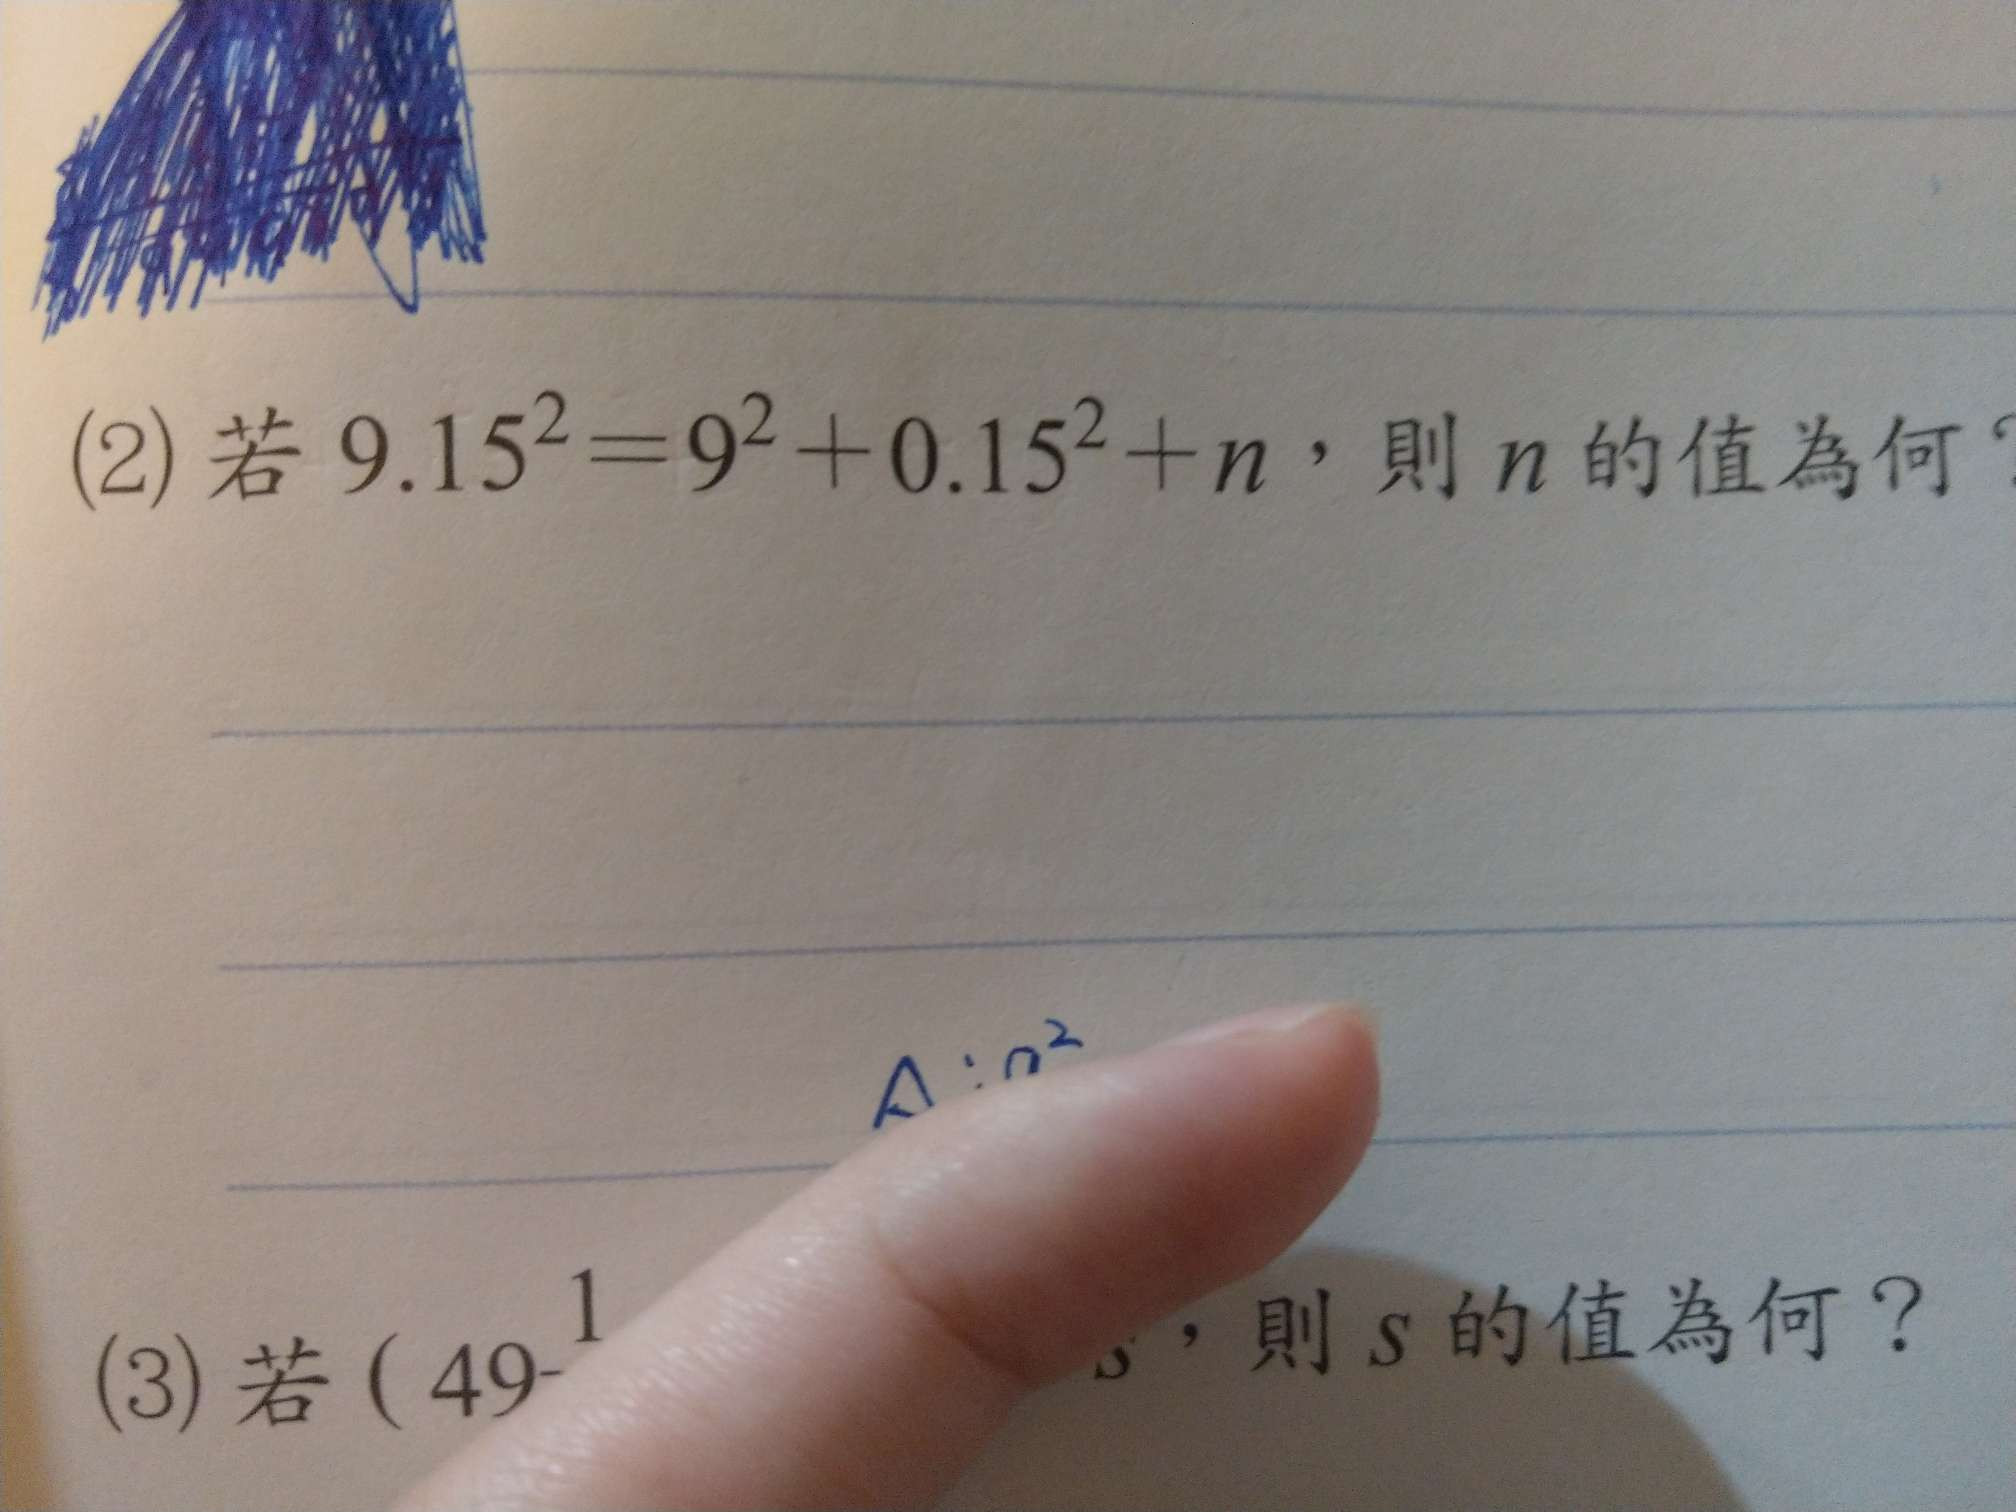 (2) 若 9.15²＝9²＋0.15²＋n，則 n 的值為何？
A：
(3) 若 ( 49 1 s，則 s 的值為何？